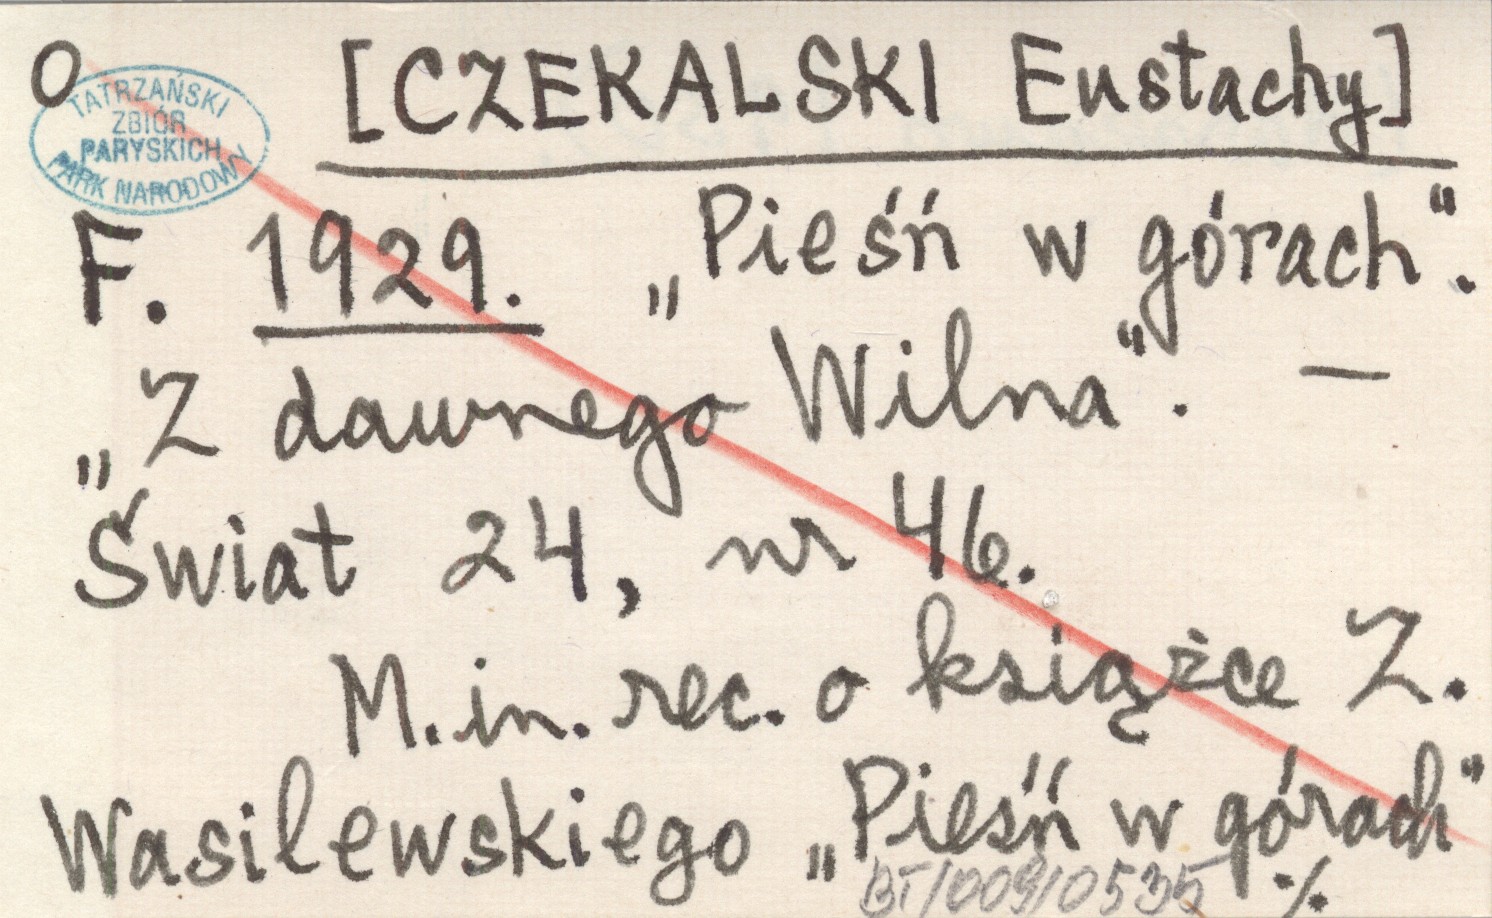 O
TATRZAŃSKI
ZBIÓR
PARYSKICH
PARK NARODOWY
[CZEKALSKI Eustachy]
F. 1929. „Pieśń w górach".
„Z dawnego Wilna". —
Świat 24, nr 46.
M.in. rec. o książce Z.
Wasilewskiego „Pieśń w górach"
BT/009/0535 ./.